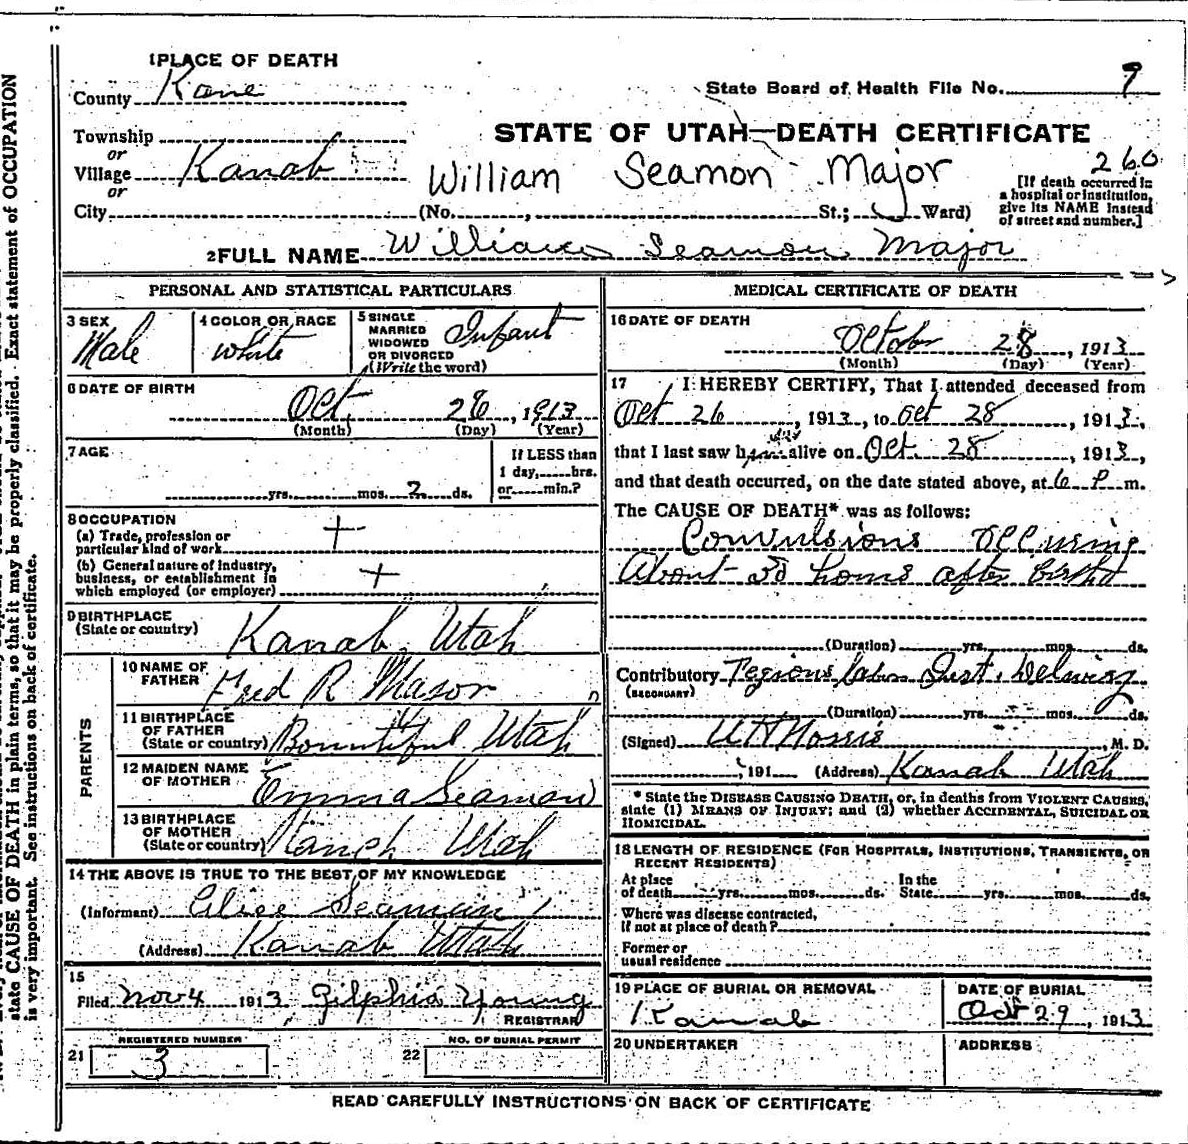 state CAUSE OF DEATH in plain terms, so that it may be properly classified. Exact statement of OCCUPATION
is very important. See instructions on back of certificate.
1 PLACE OF DEATH
County Kane
State Board of Health File No. 9
Township
or
Village Kanab
or
City (No. , St.; Ward)
STATE OF UTAH—DEATH CERTIFICATE
William Seamon Major
260
[If death occurred in
a hospital or institution,
give its NAME instead
of street and number.]
2 FULL NAME William Seamon Major
PERSONAL AND STATISTICAL PARTICULARS
3 SEX
Male
4 COLOR OR RACE
White
5 SINGLE
MARRIED
WIDOWED
OR DIVORCED
(Write the word)
Infant
6 DATE OF BIRTH
Oct. 26, 1913
(Month) (Day) (Year)
7 AGE
yrs. mos. 2 ds.
If LESS than
1 day, hrs.
or min.?
8 OCCUPATION
(a) Trade, profession or
particular kind of work
+
(b) General nature of industry,
business, or establishment in
which employed (or employer)
+
9 BIRTHPLACE
(State or country)
Kanab, Utah
PARENTS
10 NAME OF
FATHER
Fred R
11 BIRTHPLACE
OF FATHER
(State or country)
Bountiful Utah
12 MAIDEN NAME
OF MOTHER
Emma Seamon
13 BIRTHPLACE
OF MOTHER
(State or country)
Utah
14 THE ABOVE IS TRUE TO THE BEST OF MY KNOWLEDGE
(Informant) Alice Seaman
(Address) Kanab Utah
15
Filed Nov 4 1913 Young
REGISTRAR
REGISTERED NUMBER
21 3
NO. OF BURIAL PERMIT
22
MEDICAL CERTIFICATE OF DEATH
16 DATE OF DEATH
October 28, 1913
(Month) (Day) (Year)
17 I HEREBY CERTIFY, That I attended deceased from
Oct 26, 1913, to Oct 28, 1913,
that I last saw him alive on Oct. 28, 1913,
and that death occurred, on the date stated above, at 6 P m.
The CAUSE OF DEATH* was as follows:
Convulsions occuring
About 30 hours after birth
(Duration) yrs. mos. ds.
Contributory
(SECONDARY)
(Duration) yrs. mos. ds.
(Signed) Norris, M. D.
, 191 (Address) Kanab Utah
* State the DISEASE CAUSING DEATH, or, in deaths from VIOLENT CAUSES,
state (1) MEANS OF INJURY; and (2) whether ACCIDENTAL, SUICIDAL OR
HOMICIDAL.
18 LENGTH OF RESIDENCE (FOR HOSPITALS, INSTITUTIONS, TRANSIENTS, OR
RECENT RESIDENTS)
At place
of death yrs. mos. ds.
In the
State yrs. mos. ds.
Where was disease contracted,
If not at place of death?
Former or
usual residence
19 PLACE OF BURIAL OR REMOVAL
Kanab
DATE OF BURIAL
Oct 29, 1913
20 UNDERTAKER
ADDRESS
READ CAREFULLY INSTRUCTIONS ON BACK OF CERTIFICATE